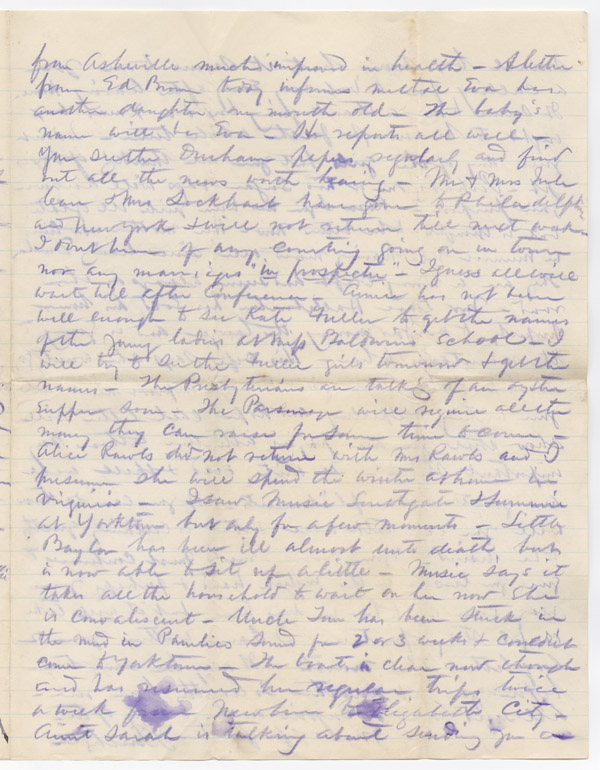 from Asheville much improved in health – A letter
from Ed Brown today informs me that Eva has
another daughter one month old – The baby's
name will be Eva – He reports all well –
You see the Durham papers regularly and find
out all the news worth – Mr & Mrs
& Mrs Lockhart have gone to Philadelphia
and New York & will not return till next week –
I don't hear of any courting going on in town
nor any marriages "in prospectu" – I guess all will
wait till after Conference – Annie has not been
well enough to see Kate Fuller to get the names
of the young ladies at Miss Baldwin's School – I
will try to see the Fuller girls tomorrow & get the
names – The Presbyterians are talking of an oyster
supper soon – The Parsonage will require all the
money they can raise for some time to come –
Alice Rawls did not return with Mrs Rawls and I
presume she will spend the winter at home in
Virginia – I saw Music Southgate &
at Yorktown but only for a few moments – Little
Baylor has been ill almost unto death but
is now able to sit up a little – Music says it
takes all the household to wait on her now she
is convalescent – Uncle Tom has been stuck in
the mud in Pamlico Sound for 2 or 3 weeks & couldn't
come to Yorktown – The boat is clear now though
and has resumed her regular trips twice
a week from Newbern to Elizabeth City –
Aunt Sarah is talking about sending you a